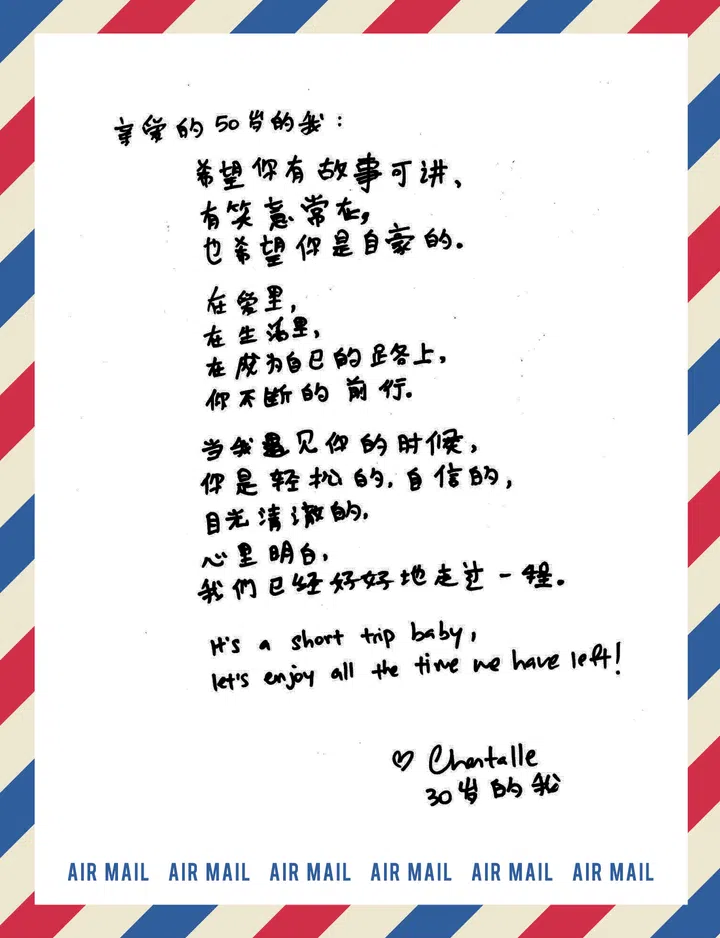 亲爱的50岁的我：
希望你有故事可讲，
有笑意常在，
也希望你是自豪的。
在爱里，
在生活里，
在成为自己的路上，
你不断的前行。
当我遇见你的时候，
你是轻松的，自信的，
目光清澈的，
心里明白，
我们已经好好地走过一程。
It's a short trip baby,
let's enjoy all the time we have left!
♡ Chantalle
30岁的我
AIR MAIL AIR MAIL AIR MAIL AIR MAIL AIR MAIL AIR MAIL